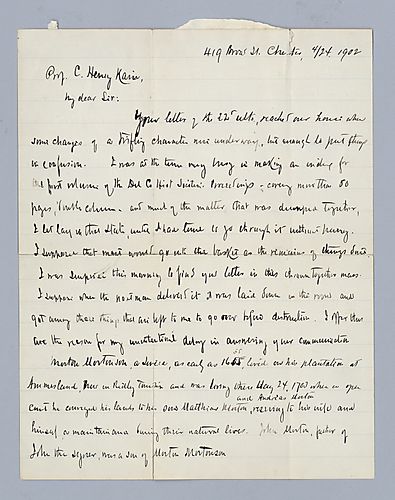 419 Broad St. Chester, 4/24. 1902
Prof. C. Henry Kain,
My dear Sir:
Your letter of the 22d ulto. reached our house when
some changes of a trifling character were under way, but enough to put things
in confusion. I was at the time very busy in making an index for
the first volume of the Del Co Hist Society Proceedings - covering more than 50
pages, double column - and much of the matter, that was dumped together,
I let lay in that state, until I had time to go through it without hurry.
I suppose that most would go into the basket as the remains of things
I was surprised this morning to find your letter in this mass.
I suppose when the postman delivered it it was laid down in the room and
got among those things that are left to me to go over before destruction. I offer this
as the reason for my unintentional delay in answering your communication
Morton Mortonson, a Swede, as early as 1655 lived on his plantation at
Ammesland, in Ridley Township and was living there May 24, 1703 when in open
and Andreas Morton
court he conveyed his lands to his sons Matthias Morton, reserving to his wife and
himself a maintainance during their natural lives. John Morton, father of
John the signer, was a son of Morton Mortonson